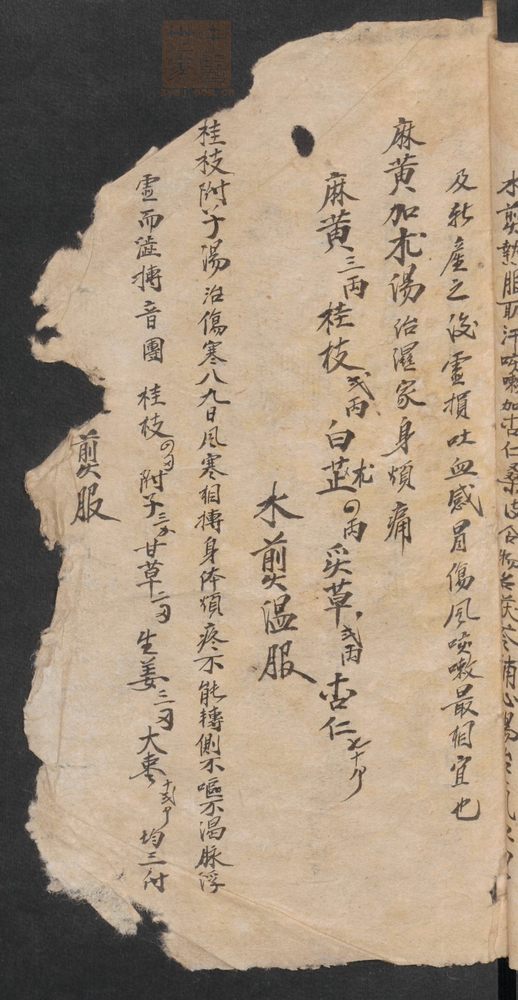 水煎熱服取汗咳嗽加杏仁桑
及新產之後虛損吐血感冒傷風咳嗽最相宜也
麻黃加朮湯治濕家身煩痛
麻黃三両桂枝弍両白芷朮四両炙草弍両杏仁七十个
水煎温服
桂枝附子湯治傷寒八九日風寒相摶身体煩疼不能轉側不嘔不渴脉浮
虛而澁摶音團 桂枝四刄附子三个甘草二刄生姜三刄大棗十弍个均三付
煎服